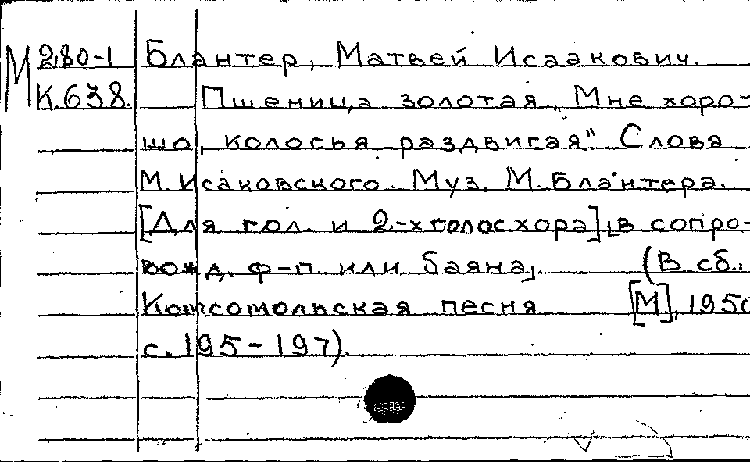 М 2.80-1 Блантер, Матвей Исаакович.
К.638. Пшеница золотая „Мне хоро-
шо, колосья раздвигая". Слова
М. Исаковского. Муз. М. Блантера.
[Для гол. и 2-х голос хора], в сопро-
вожд. ф-п. или баяна,. (В сб.:
Комсомольская песня [М], 1950
с. 195-197).